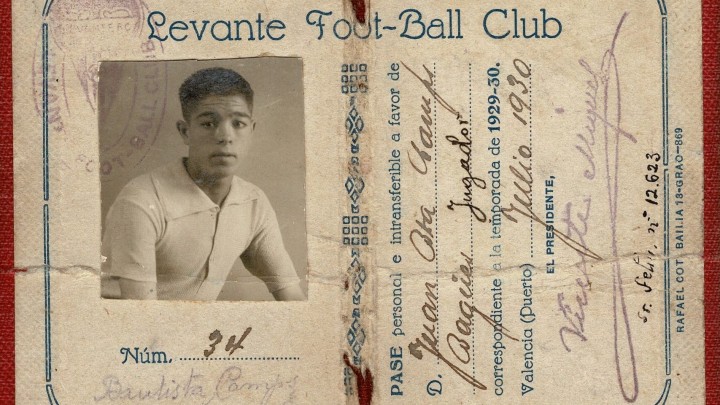 Levante Foot-Ball Club
FOOT-BALL CLUB
Núm. 34
Bautista Camps
PASE personal e intransferible a favor de
D. Juan Camps
Jugador
correspondiente a la temporada de 1929-30.
Valencia (Puerto) Julio 1930
EL PRESIDENTE,
Vicente Miguel
nº 12.623
RAFAEL COT BAILIA 13-GRAO-869